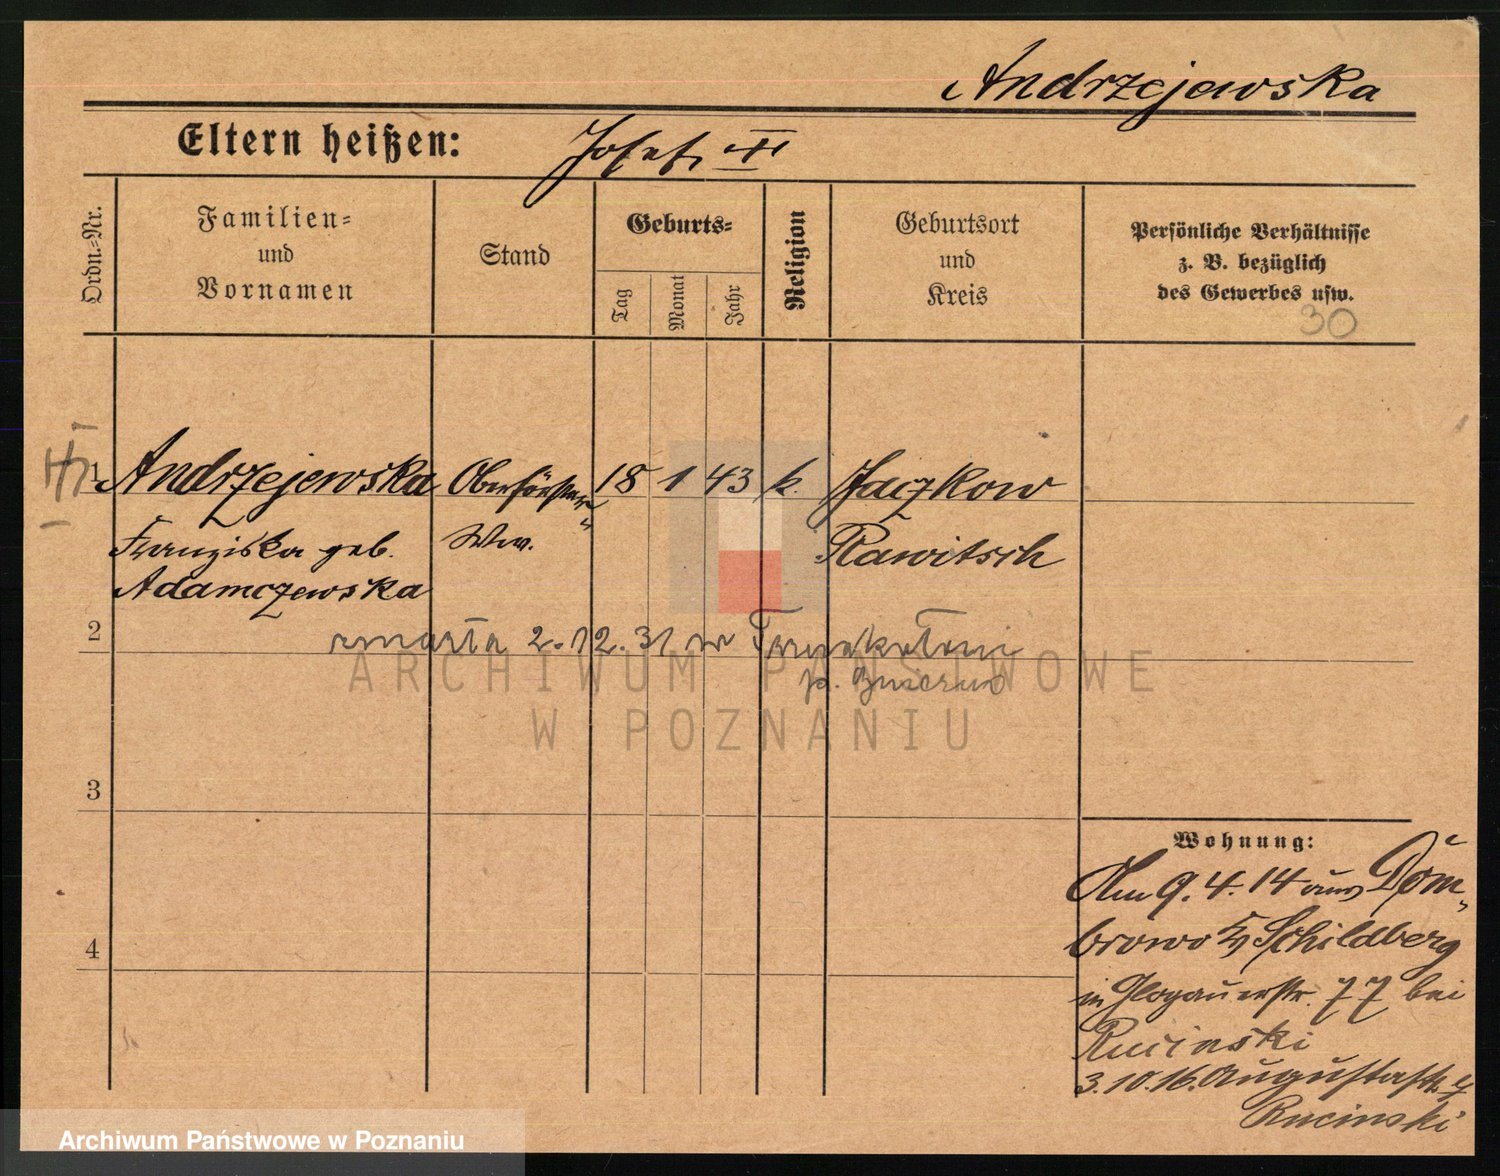 Andrzejewska
Eltern heißen: Josef
Ordn.=Nr.
Familien=
und
Vornamen
Stand
Geburts=
Tag
Monat
Jahr
Religion
Geburtsort
und
Kreis
Persönliche Verhältnisse
z. B. bezüglich
des Gewerbes usw.
30
1 Andrzejewska Oberförster 18 1 43 k. Jaczkow
Franziska geb. Ww. Rawitsch
Adamczewska
2
zmarła 2.12.31 w
p.
ARCHIWUM PAŃSTWOWE
W POZNANIU
3
4
Wohnung:
Am 9.4.14 aus Dom-
browo Schildberg
in Glogauerstr. 77 bei
Rucinski
3.10.16. Augustastr. 4
Rucinski
Archiwum Państwowe w Poznaniu